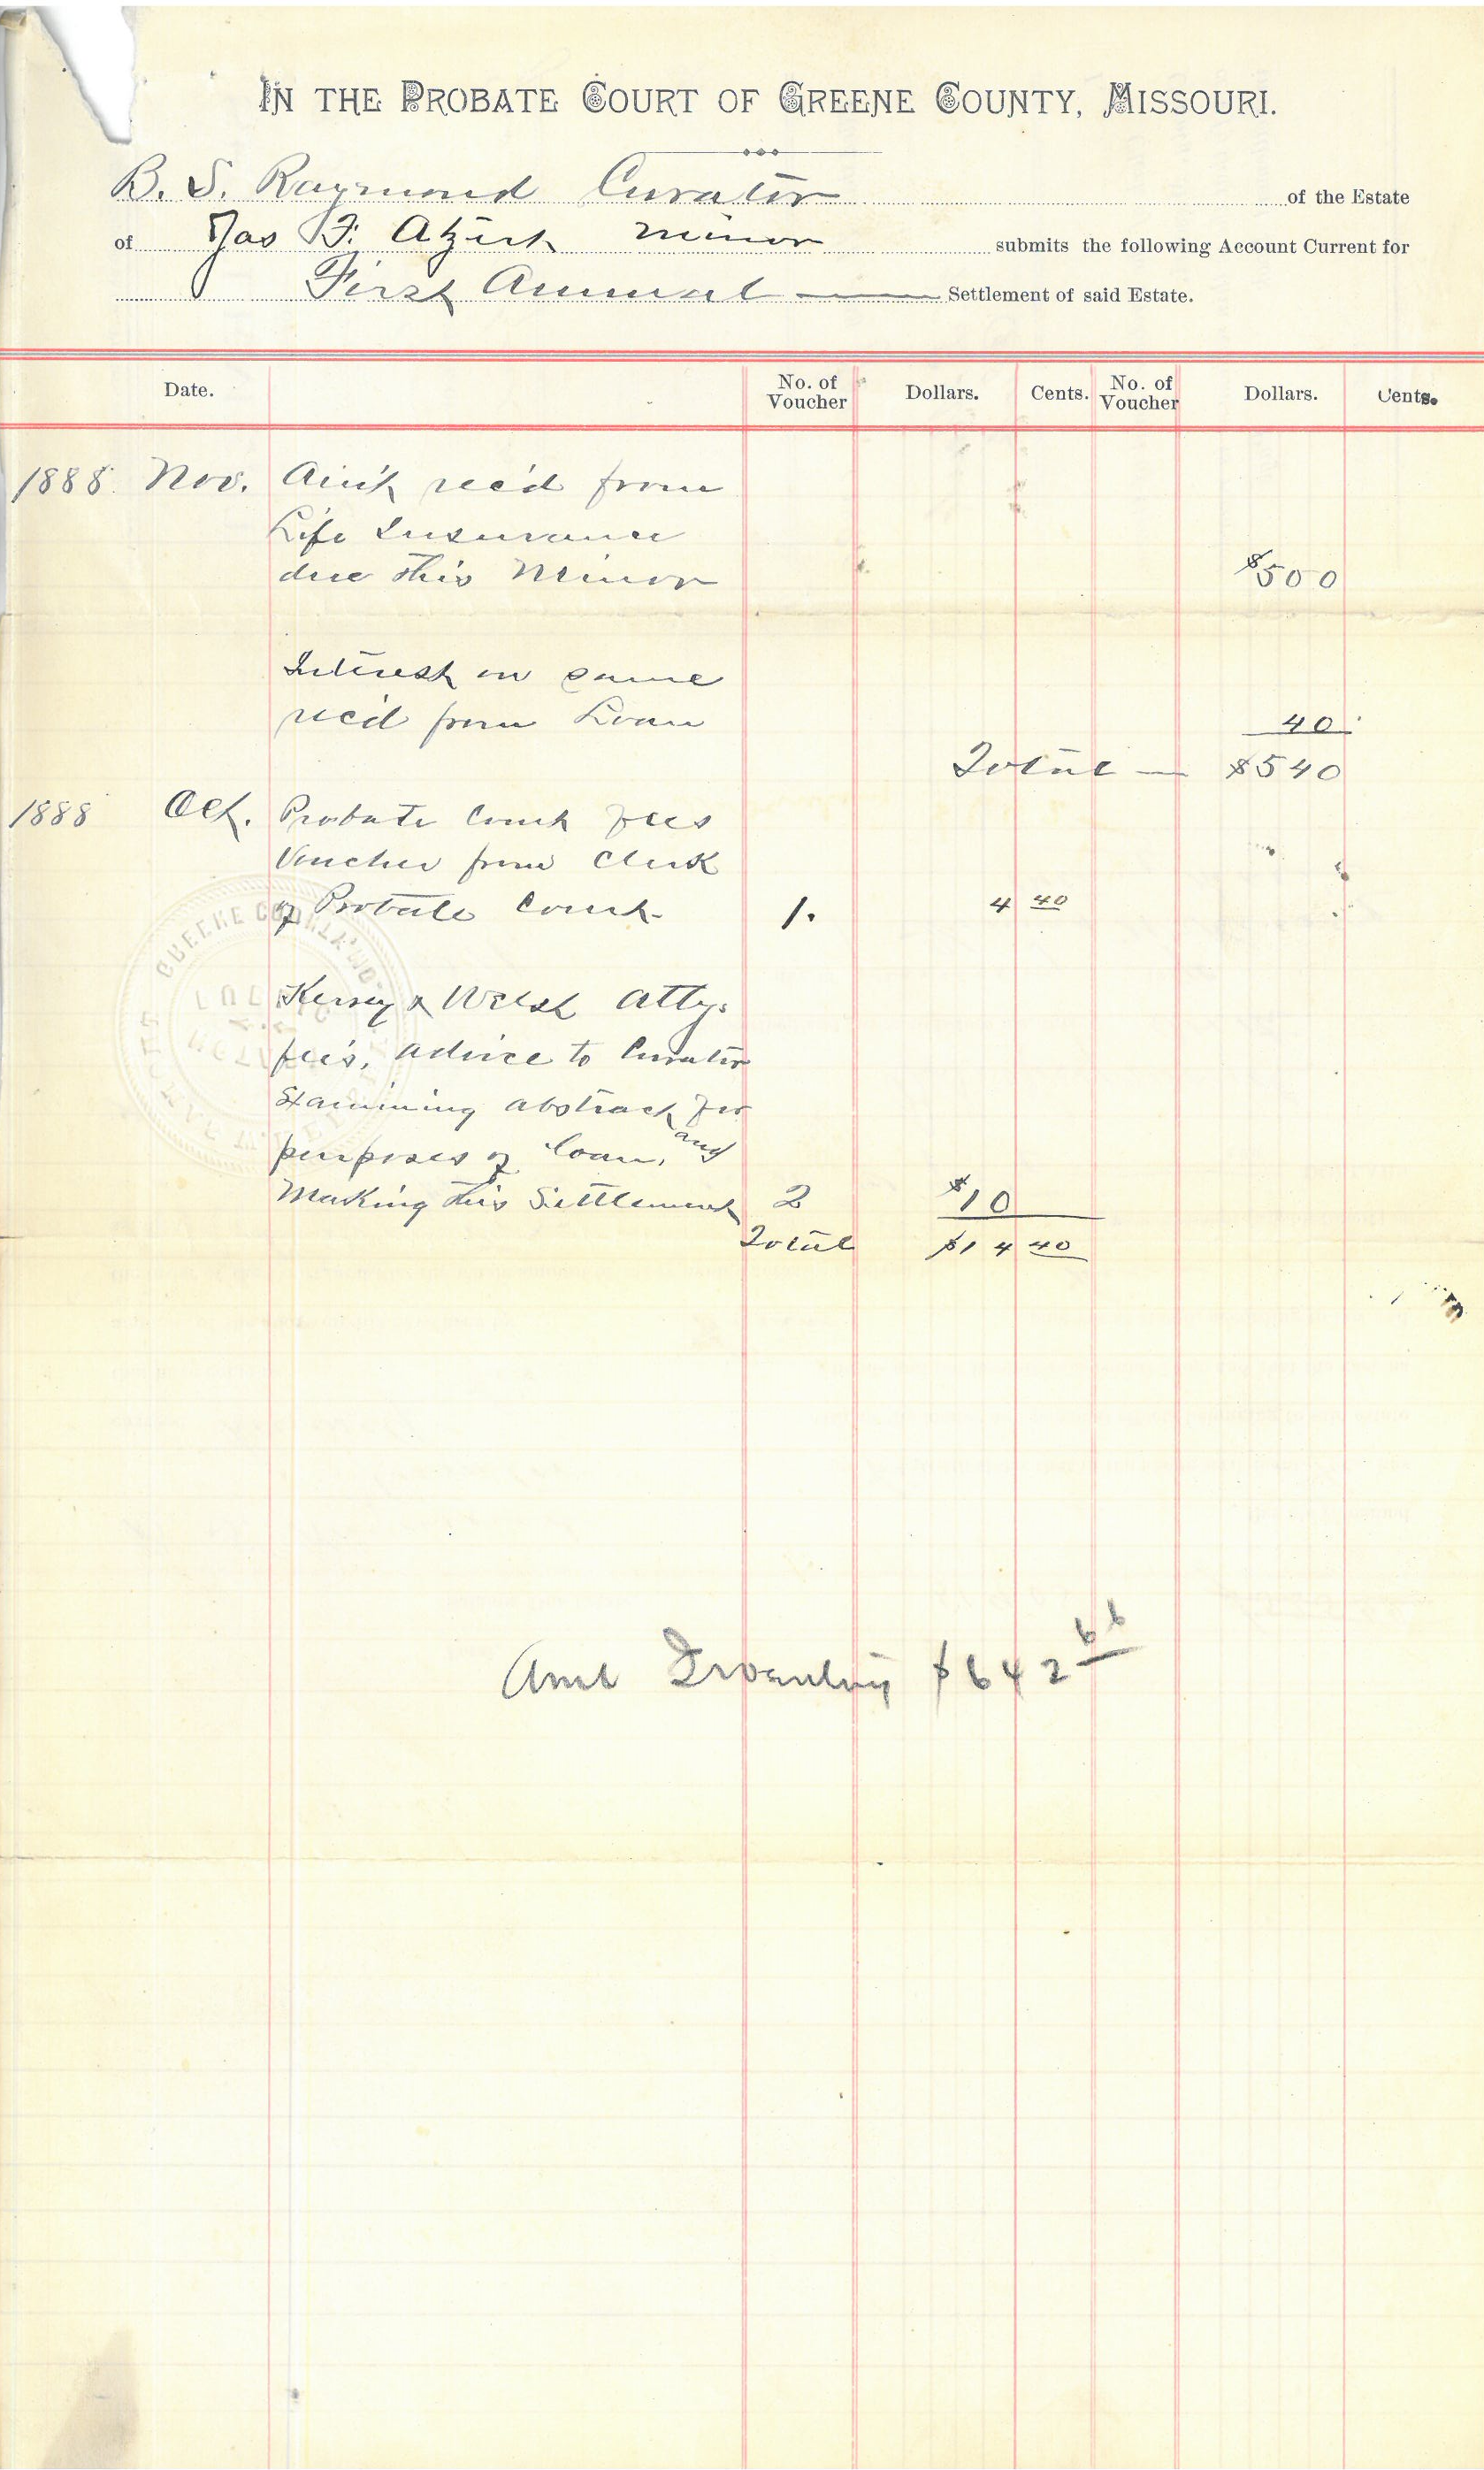 IN THE PROBATE COURT OF GREENE COUNTY, MISSOURI.
B. S. Raymond Curator of the Estate
of Jas F. Atzert minor submits the following Account Current for
First Annual Settlement of said Estate.
Date. No. of Voucher Dollars. Cents. No. of Voucher Dollars. Cents.
1888 Nov. Am't rec'd from
Life Insurance
due this Minor $500
Interest on same
rec'd from Loan 40
Total — $540
1888 Oct. Probate Court Fees
Voucher from Clerk
of Probate Court. 1. 4 40
Kersey & Welsh Attys
fees, advice to Curator
Examining abstract for
purposes of loan, and
Making this Settlement 2 $10
Total $14 40
Amt Inventory $642 66
GREENE COUNTY, MO.